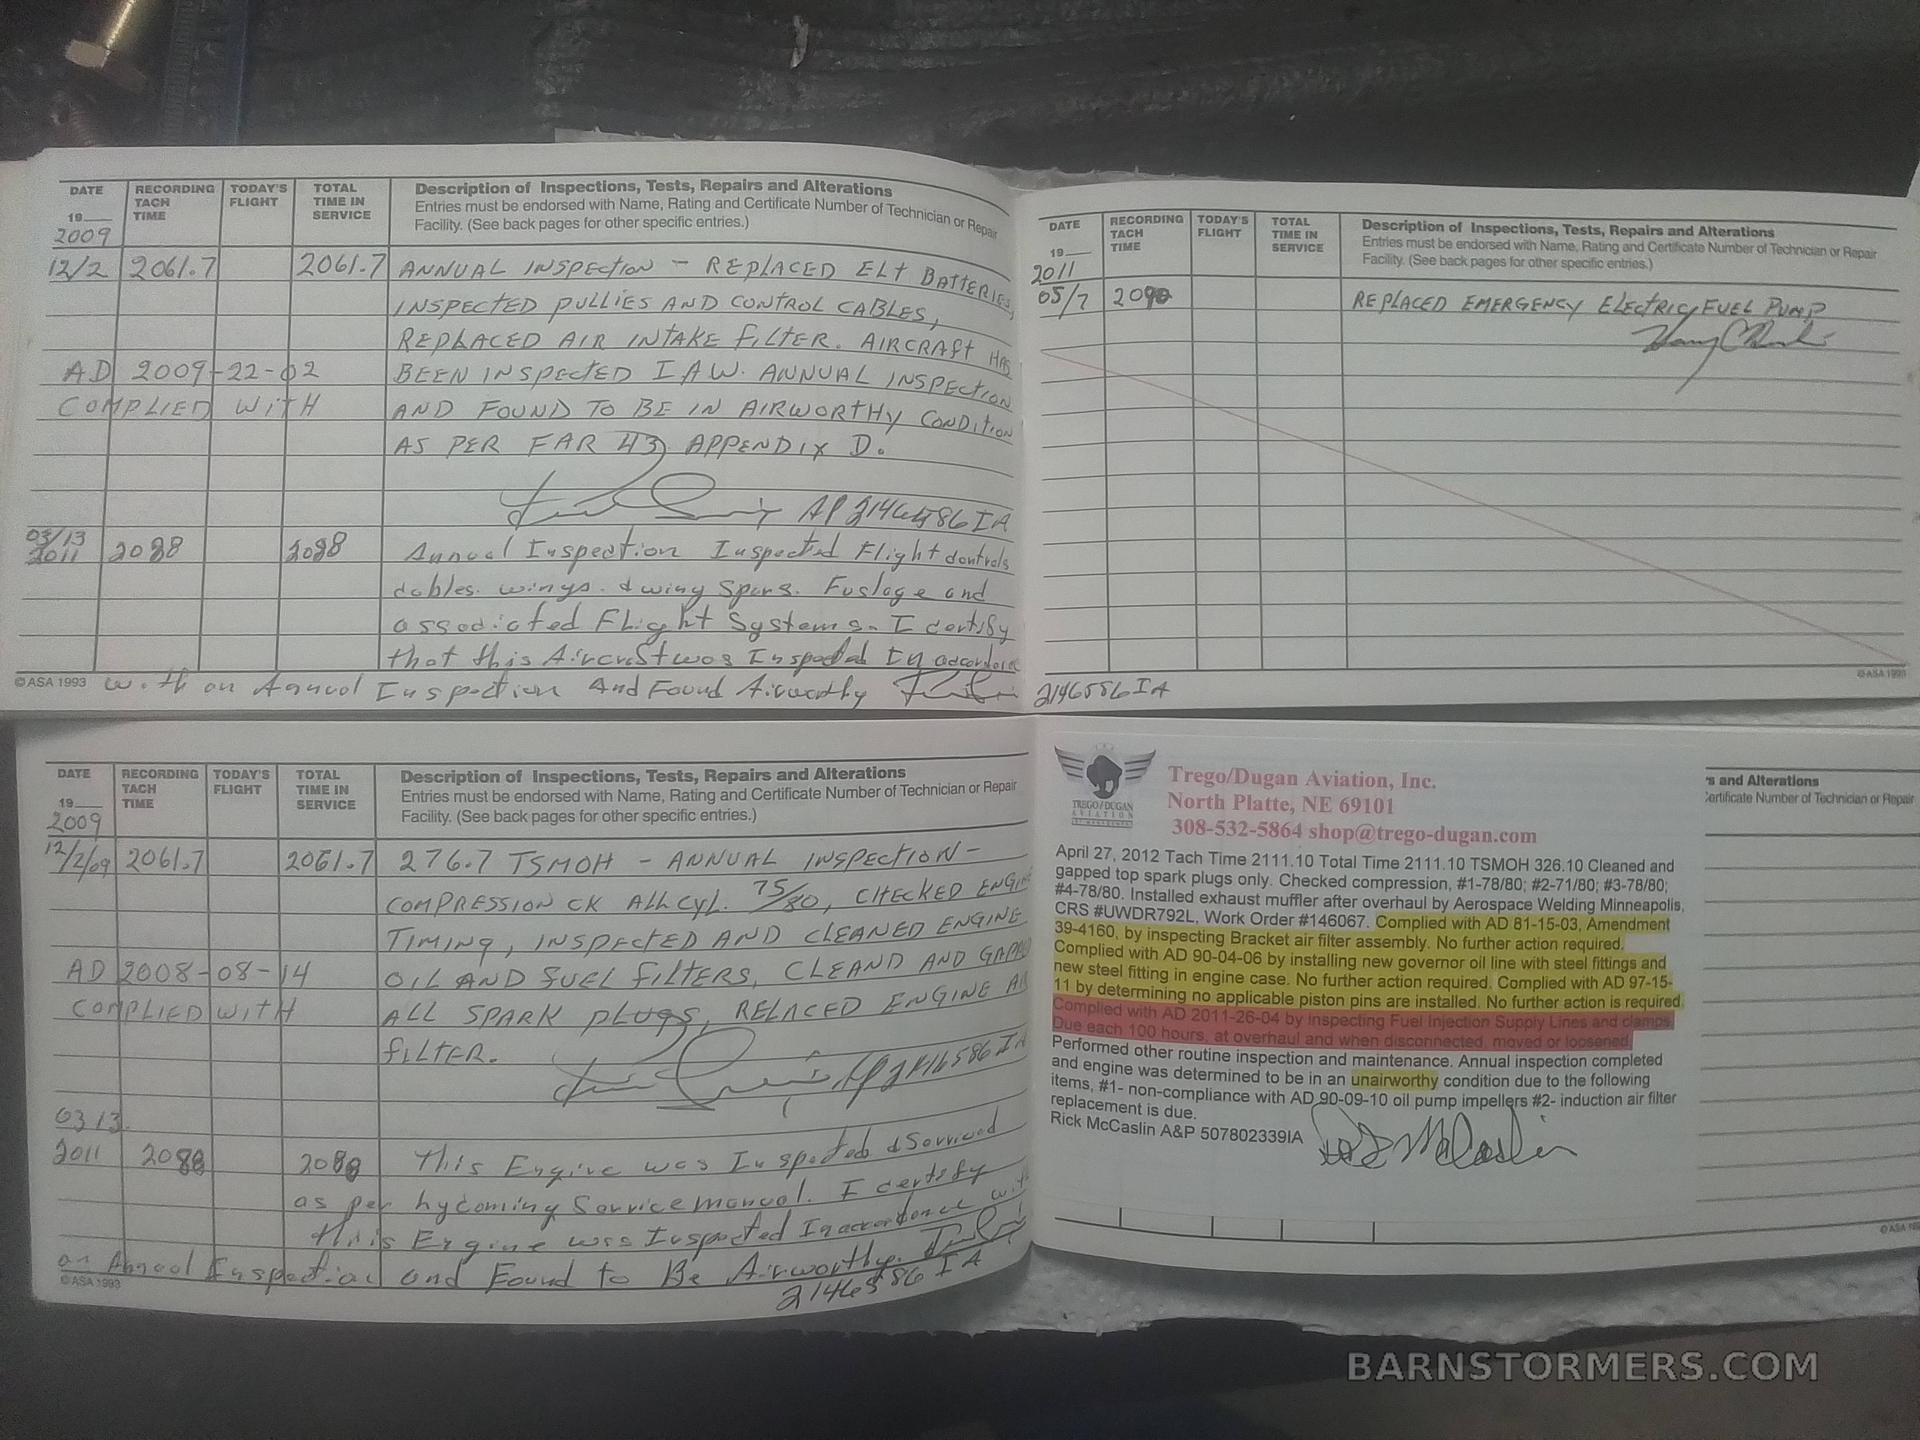 DATE RECORDING TACH TIME TODAY'S FLIGHT TOTAL TIME IN SERVICE Description of Inspections, Tests, Repairs and Alterations
Entries must be endorsed with Name, Rating and Certificate Number of Technician or Repair
Facility. (See back pages for other specific entries.)
19
2009
12/2 2061.7 2061.7 ANNUAL INSPECTION - REPLACED ELT BATTERIES,
INSPECTED PULLIES AND CONTROL CABLES,
REPLACED AIR INTAKE FILTER. AIRCRAFT HAS
AD 2009-22-02 BEEN INSPECTED I A.W. ANNUAL INSPECTION
COMPLIED WITH AND FOUND TO BE IN AIRWORTHY CONDITION
AS PER FAR 43 APPENDIX D.
AP 2146586 IA
03/13
2011 2088 2088 Annual Inspection Inspected Flight controls
cables. wings. & wing Spars. Fuslage and
associated Flight Systems. I certify
that this Aircraft was Inspected In accordance
©ASA 1993 with an Annual Inspection And Found Airworthy
2146586 IA
DATE RECORDING TACH TIME TODAY'S FLIGHT TOTAL TIME IN SERVICE Description of Inspections, Tests, Repairs and Alterations
Entries must be endorsed with Name, Rating and Certificate Number of Technician or Repair
Facility. (See back pages for other specific entries.)
19
2011
05/7 2090 REPLACED EMERGENCY ELECTRIC FUEL PUMP
©ASA 1993
DATE RECORDING TACH TIME TODAY'S FLIGHT TOTAL TIME IN SERVICE Description of Inspections, Tests, Repairs and Alterations
Entries must be endorsed with Name, Rating and Certificate Number of Technician or Repair
Facility. (See back pages for other specific entries.)
19
2009
12/2/09 2061.7 2061.7 276.7 TSMOH - ANNUAL INSPECTION -
COMPRESSION CK ALL CYL. 75/80, CHECKED ENGINE
TIMING, INSPECTED AND CLEANED ENGINE
AD 2008-08-14 OIL AND FUEL FILTERS, CLEAND AND GAPPED
COMPLIED WITH ALL SPARK PLUGS, RELACED ENGINE AIR
FILTER.
AP 2146586 IA
03 13
2011 2088 2088 This Engine was Inspected & Serviced
as per Lycoming Service manual. I certify
this Engine was Inspected In accordance with
an Annual Inspection and Found to Be Airworthy.
©ASA 1993 2146586 IA
TREGO/DUGAN
AVIATION
Trego/Dugan Aviation, Inc.
North Platte, NE 69101
308-532-5864 shop@trego-dugan.com
April 27, 2012 Tach Time 2111.10 Total Time 2111.10 TSMOH 326.10 Cleaned and
gapped top spark plugs only. Checked compression, #1-78/80; #2-71/80; #3-78/80;
#4-78/80. Installed exhaust muffler after overhaul by Aerospace Welding Minneapolis,
CRS #UWDR792L, Work Order #146067. Complied with AD 81-15-03, Amendment
39-4160, by inspecting Bracket air filter assembly. No further action required.
Complied with AD 90-04-06 by installing new governor oil line with steel fittings and
new steel fitting in engine case. No further action required. Complied with AD 97-15-
11 by determining no applicable piston pins are installed. No further action is required.
Complied with AD 2011-26-04 by inspecting Fuel Injection Supply Lines and clamps.
Due each 100 hours, at overhaul and when disconnected, moved or loosened.
Performed other routine inspection and maintenance. Annual inspection completed
and engine was determined to be in an unairworthy condition due to the following
items, #1- non-compliance with AD 90-09-10 oil pump impellers #2- induction air filter
replacement is due.
Rick McCaslin A&P 507802339IA
's and Alterations
Certificate Number of Technician or Repair
©ASA 1993
BARNSTORMERS.COM